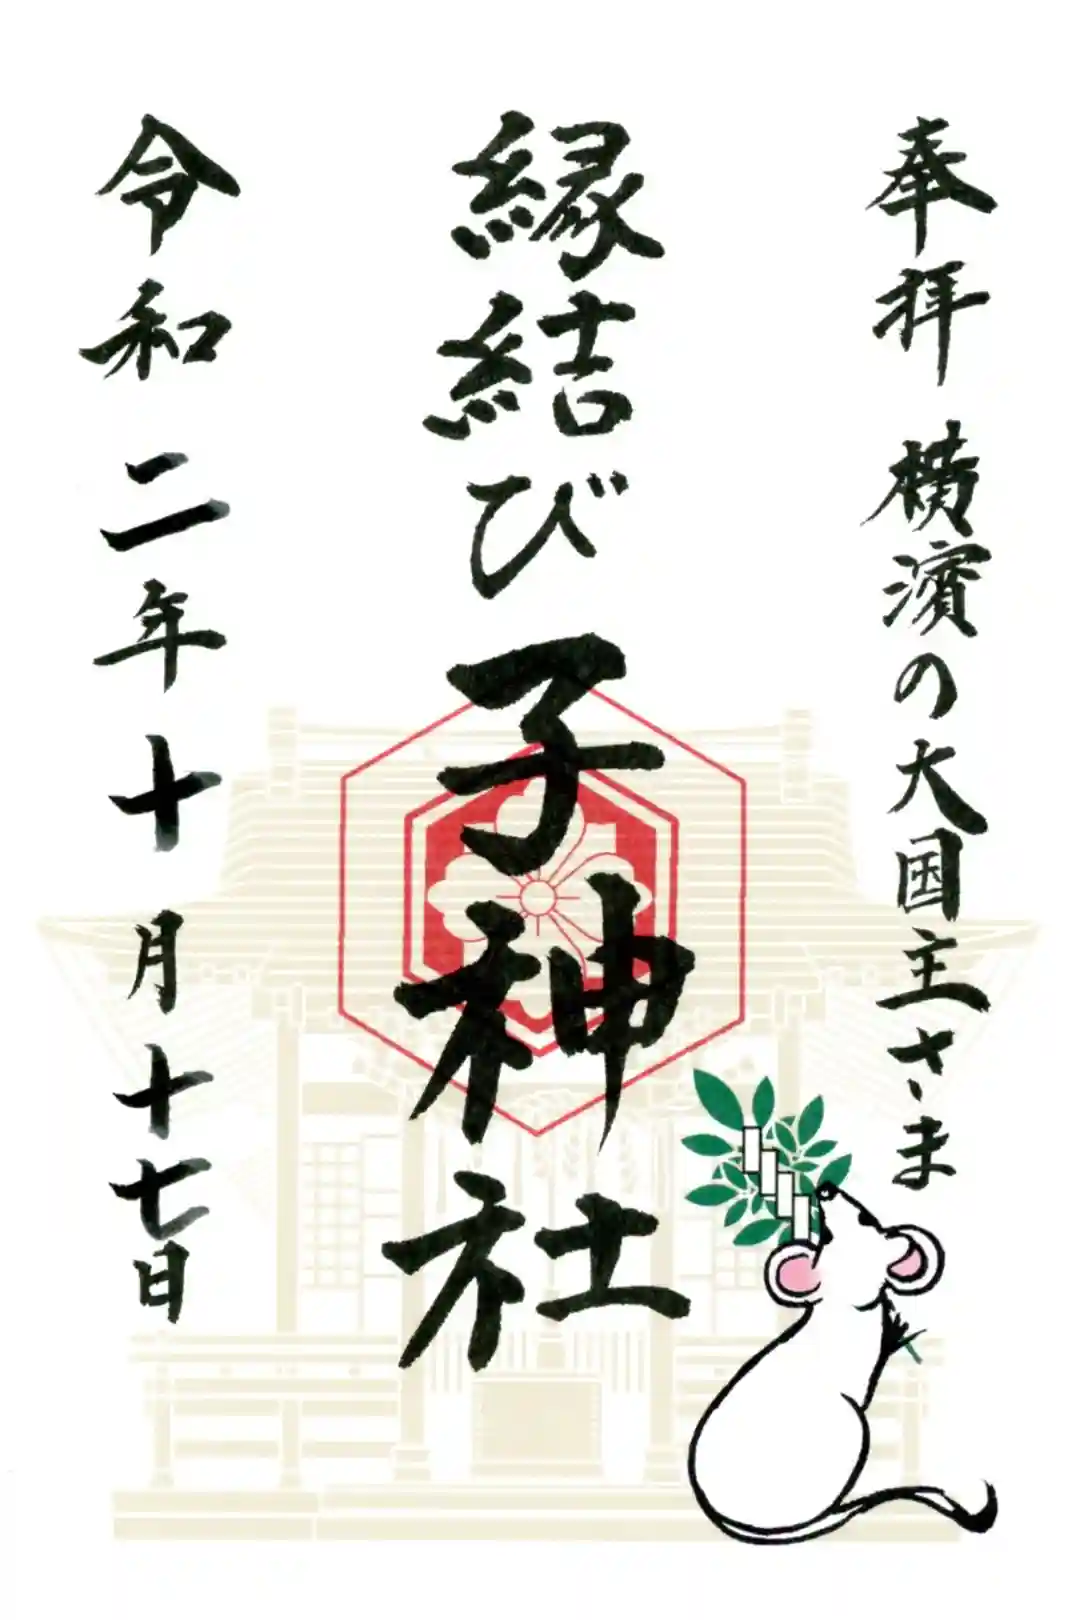 奉拝 横濱の大国主さま
縁結び 子神社
令和二年十月十七日